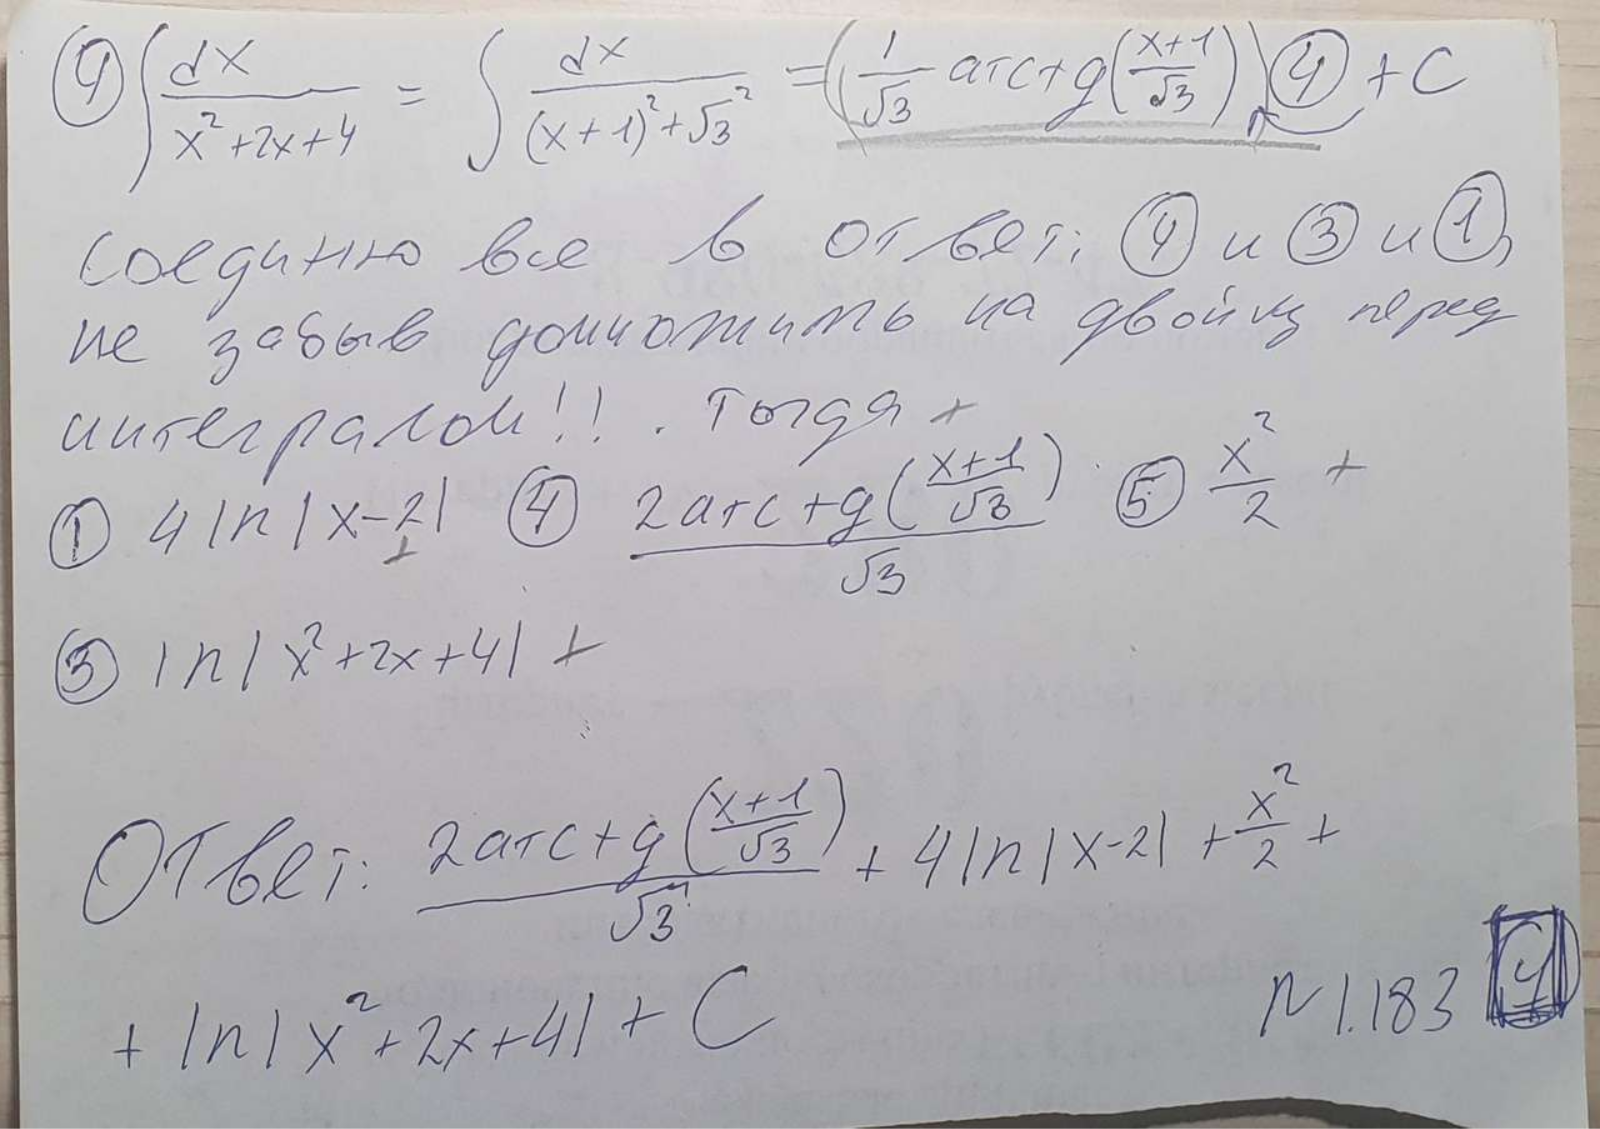 ④ ∫ dx/(x²+2x+4) = ∫ dx/((x+1)²+√3²) = (1/√3 arctg((x+1)/√3)) ④ + C
Соединяю все в ответ: ④ и ③ и ①,
не забыв домножить на двойку перед
интегралом!!. Тогда +
① 4ln|x-2| + ④ 2arctg((x+1)/√3)/√3 ⑤ x²/2 +
③ ln|x²+2x+4| +
Ответ: 2arctg((x+1)/√3)/√3 + 4ln|x-2| + x²/2 +
+ ln|x²+2x+4| + C
N 1.183 4